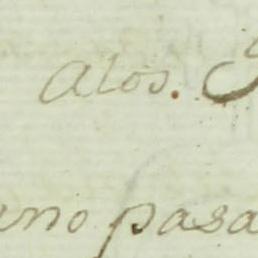 Alos.
ano pasa